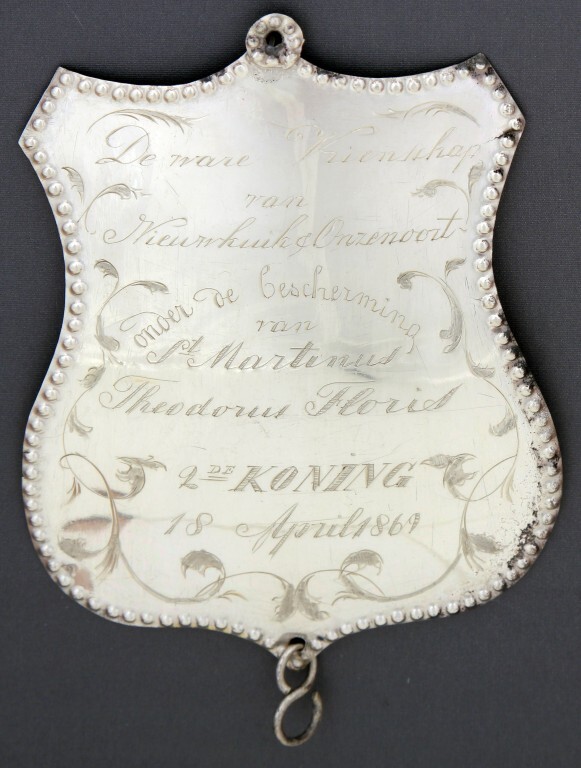 De ware Vrienschap
van
Nieuwkuik & Onzenoort
onder de bescherming
van
St. Martinus
Theodorus Floris
2DE KONING
18 April 1869